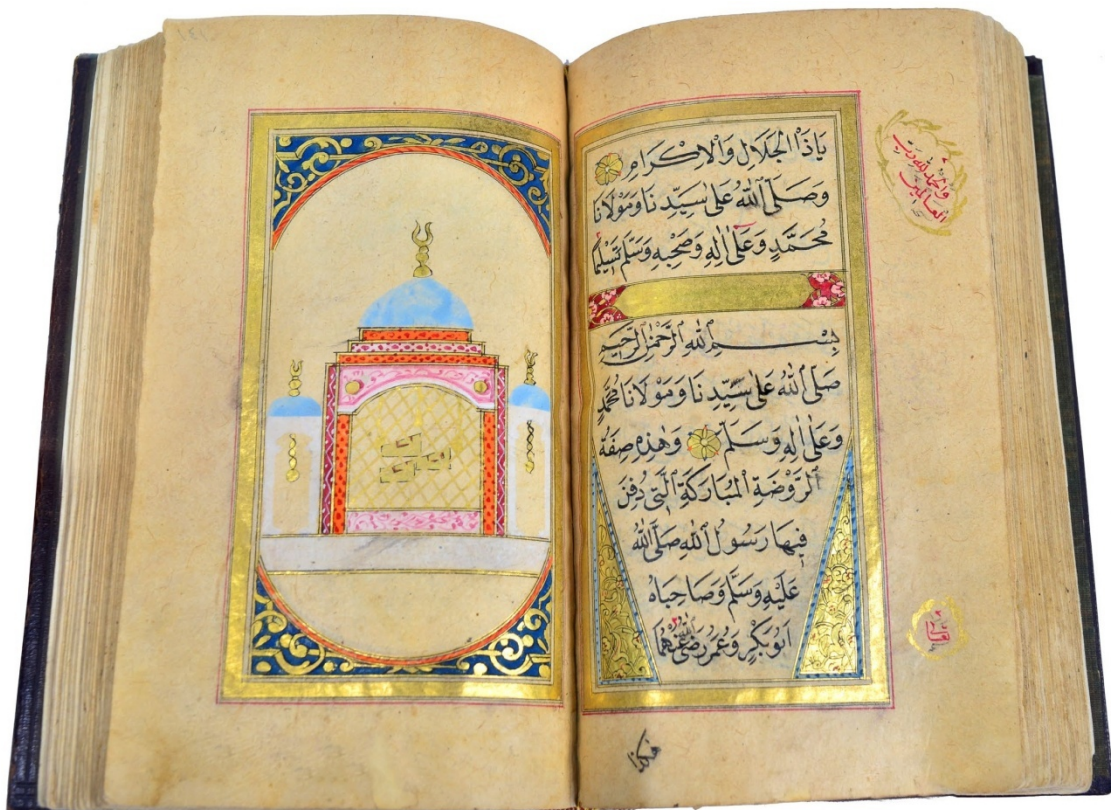 يَاذَا الْجَلَالِ وَالْاِكْرَامِ
وَصَلَّى اللّٰهُ عَلٰى سَيِّدِنَا وَمَوْلَانَا
مُحَمَّدٍ وَعَلٰى اٰلِهِ وَصَحْبِهِ وَسَلَّمَ تَسْلِيمًا
بِسْمِ اللّٰهِ الرَّحْمٰنِ الرَّحِيمِ
صَلَّى اللّٰهُ عَلٰى سَيِّدِنَا وَمَوْلَانَا مُحَمَّدٍ
وَعَلٰى اٰلِهِ وَسَلَّمَ وَهٰذِهِ صِفَةُ
الرَّوْضَةِ الْمُبَارَكَةِ الَّتِي دُفِنَ
فِيهَا رَسُولُ اللّٰهِ صَلَّى اللّٰهُ
عَلَيْهِ وَسَلَّمَ وَصَاحِبَاهُ
اَبُو بَكْرٍ وَعُمَرُ رَضِيَ اللّٰهُ عَنْهُمَا
والحمد لله رب
العالمين
هكذا